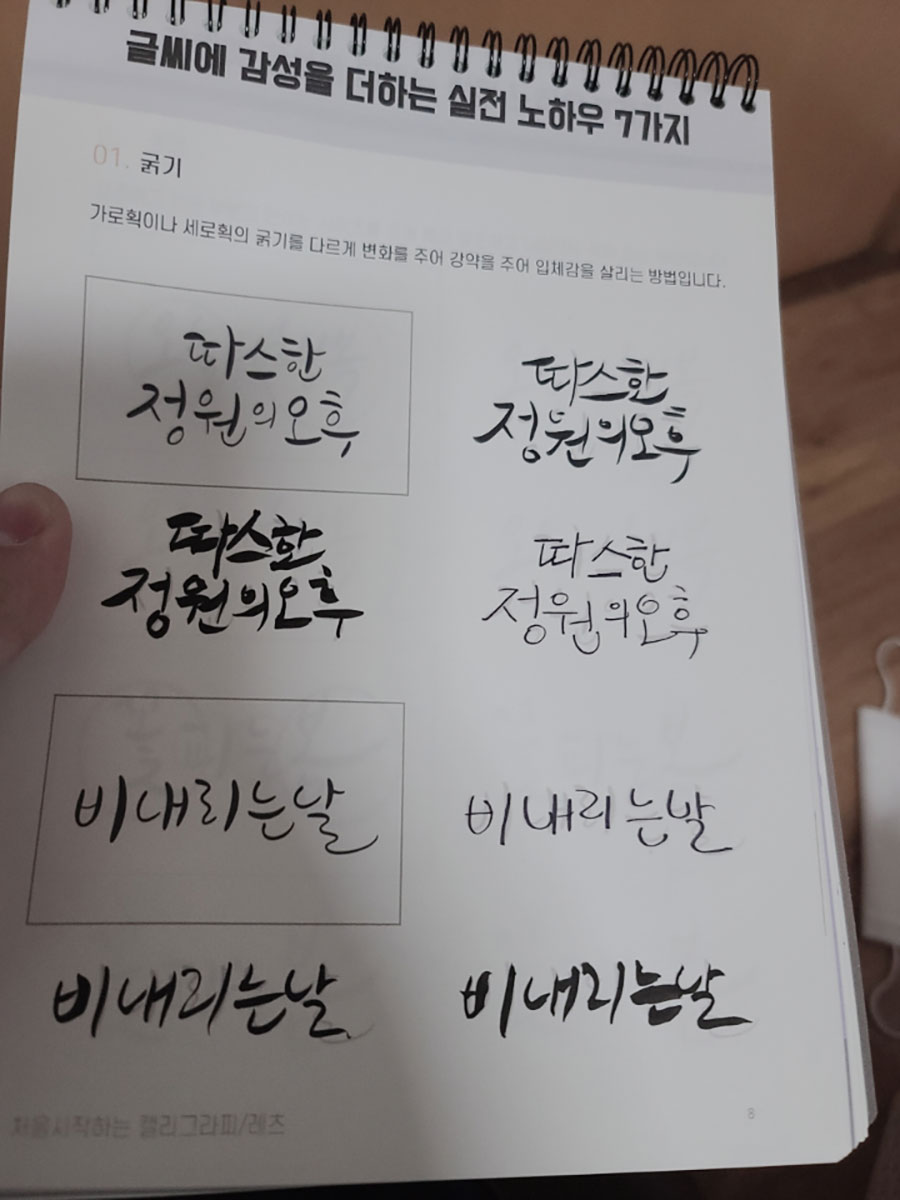 글씨에 감성을 더하는 실전 노하우 7가지
01. 굵기
가로획이나 세로획의 굵기를 다르게 변화를 주어 강약을 주어 입체감을 살리는 방법입니다.
따스한
정원의오후
따스한
정원의오후
따스한
정원의오후
따스한
정원의오후
비내리는날
비내리는날
비내리는날
비내리는날
처음시작하는 캘리그라피/레츠
8